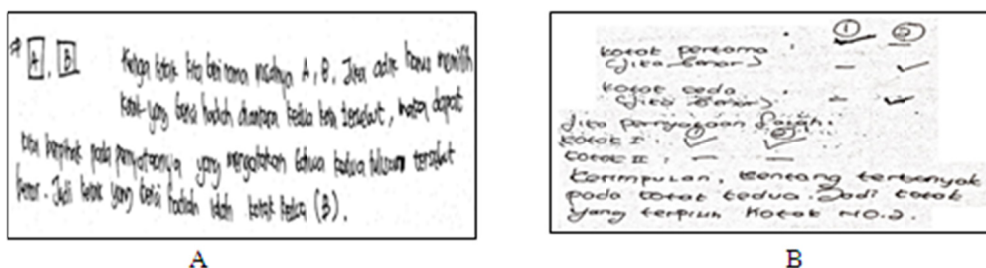 ⇒ A, B Ketiga kotak kita beri nama misalnya A, B. Jika adik harus memilih
kotak yang berisi hadiah diantara kedua kotak tersebut, maka dapat
kita berpihak pada pernyataannya yang mengatakan bahwa kedua tulisan tersebut
benar. Jadi kotak yang berisi hadiah ialah kotak kedua (B).
A
① ②
kotak pertama : ✓ —
(jika benar) — ✓
(jika benar) — ✓
jika pernyataan salah.
kotak I : ✓ ✓
kotak II : — —
Kesimpulan, centang terbanyak
pada kotak kedua. Jadi kotak
yang terpilih Kotak NO.2.
B